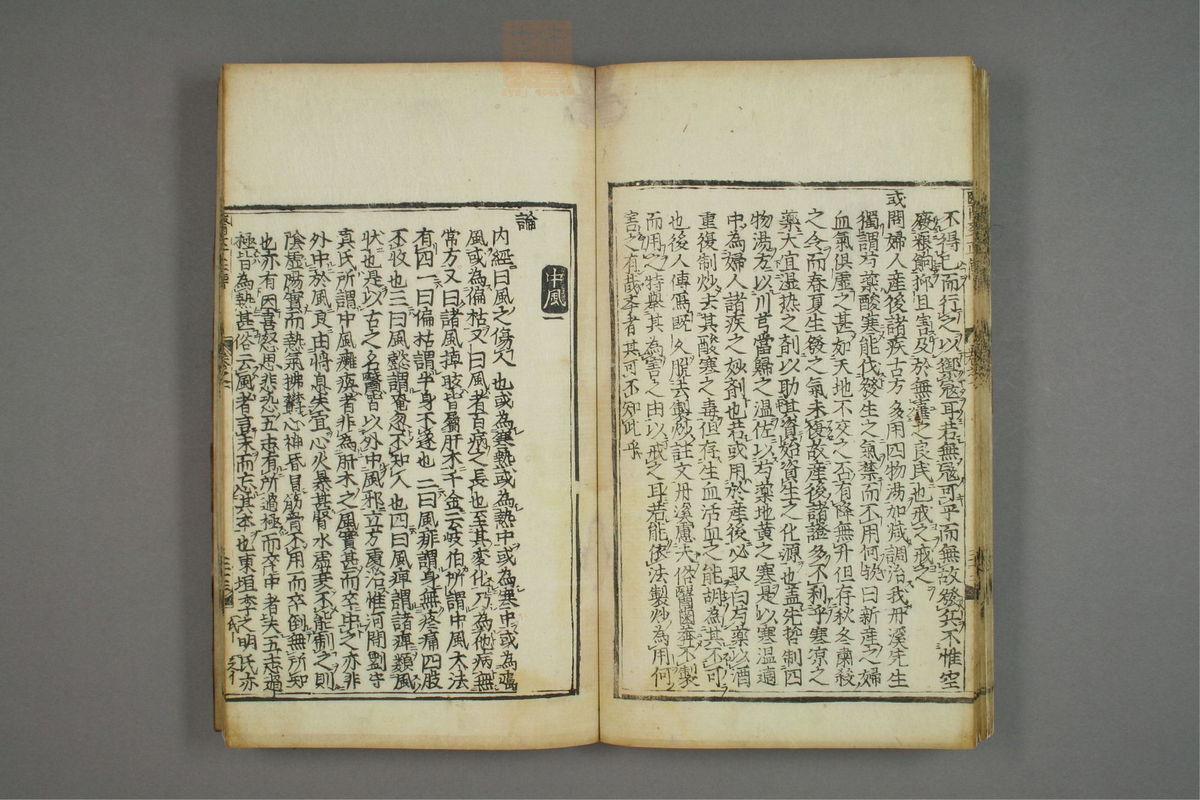 不得已而行之以禦寇耳若無寇可平而無故發兵不惟空
廢糧餉抑且害及於無辜之良民也戒之戒之
或問婦人産後諸疾古方多用四物湯加減調治我丹溪先生
獨謂芍藥酸寒能伐發生之氣禁而不用何歟曰新産之婦
血氣俱虛之甚如天地不交之否有降無升但存秋冬肅殺
之令而春夏生發之氣未復故産後諸證多不利乎寒凉之
藥大宜温热之劑以助其資始資生之化源也盖先哲制四
物湯方以川芎當歸之温佐以芍藥地黄之寒是以寒温適
中為婦人諸疾之妙劑也若或用於産後必取白芍藥以酒
重復制炒去其酸寒之毒但存生血活血之能胡為其不可
也後人傳寫既久脫去製炒註文丹溪慮夫俗醫鹵莽不製
而用之特舉其為害之由以戒之耳若能依法製炒為用何
害之有哉學者其可不知此乎
中風一
論
内經曰風之傷人也或為寒熱或為熱中或為寒中或為癘
風或為偏枯又曰風者百病之長也至其変化乃為他病無
常方又曰諸風掉眩皆屬肝木千金云岐伯所謂中風大法
有四一曰偏枯謂半身不遂也二曰風痱謂身無疼痛四肢
不收也三曰風懿謂奄忽不知人也四曰風痺謂諸痺類風
狀也是以古之名醫皆以外中風邪立方處治惟河間劉守
真氏所謂中風癱瘓者非為肝木之風實甚而卒中之亦非
外中於風良由將息失宜心火暴甚腎水虛衰不能制之則
陰虛陽實而熱氣拂鬱心神昏冒筋骨不用而卒倒無所知
也亦有因喜怒思悲恐五志有所過極而卒中者夫五志過
極皆為熱甚俗云風者言末而忘其本也東垣李之明氏亦